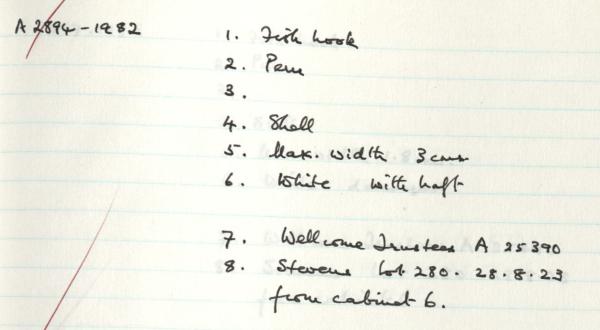 A 2894-1982
1. Fish hook
2. Peru
3.
4. Shell
5. Max. width 3 cms
6. White with haft
7. Wellcome Trustees A 25390
8. Stevens Lot 280. 28.8.23
from cabinet 6.